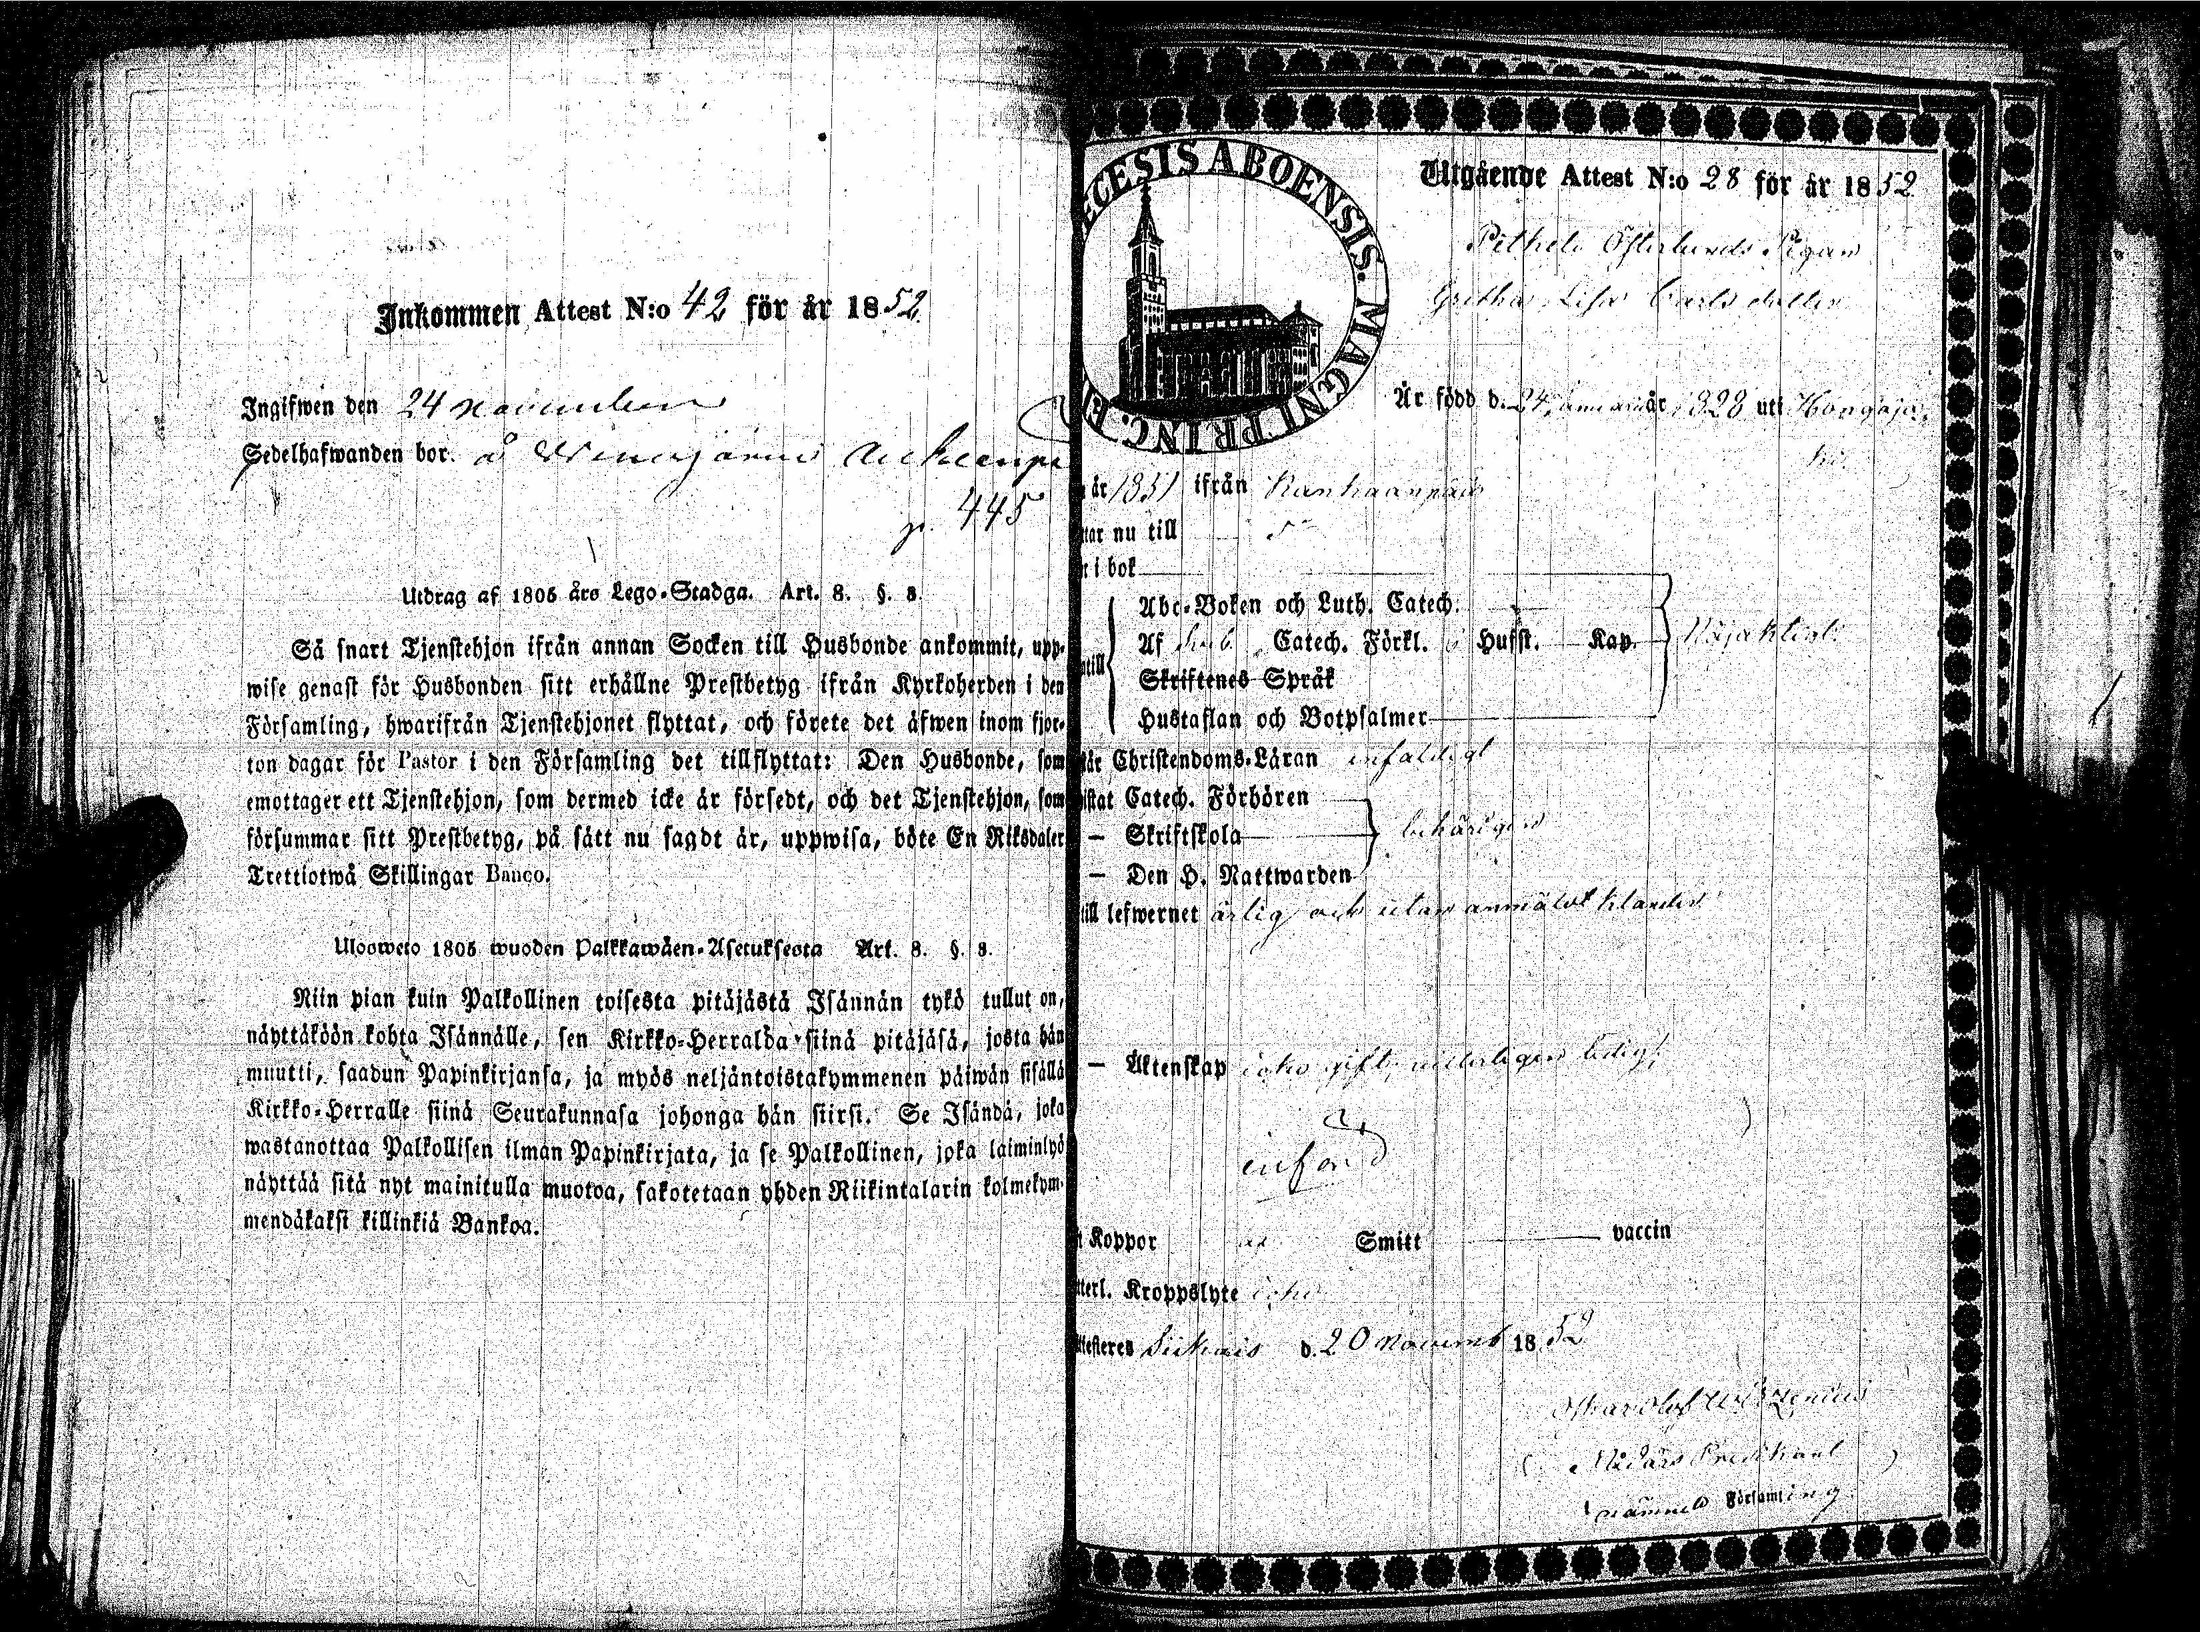 Inkommen Attest N:o 42 för år 1852.
Ingifwen den 24 november
Sedelhafwanden bor. å
p. 445
Utdrag af 1805 års Lego-Stadga. Art. 8. §. 8.
Så snart Tjenstehjon ifrån annan Socken till Husbonde ankommit, upp-
wise genast för Husbonden sitt erhållne Prestbetyg ifrån Kyrkoherden i den
Församling, hwarifrån Tjenstehjonet flyttat, och förete det äfwen inom fjor-
ton dagar för Pastor i den Församling det tillflyttat: Den Husbonde, som
emottager ett Tjenstehjon, som dermed icke är försedt, och det Tjenstehjon, som
försummar sitt Prestbetyg, på sätt nu sagdt är, uppwisa, böte En Riksdaler
Trettiotwå Skillingar Banco.
Ulosweto 1805 wuoden Palkkawäen-Asetuksesta Art. 8. §. 8.
Niin pian kuin Palkollinen toisesta pitäjästä Isännän tykö tullut on,
näyttäköön kohta Isännälle, sen Kirkko-Herralda siinä pitäjäsä, josta hän
muutti, saadun Papinkirjansa, ja myös neljäntoistakymmenen päiwän sisällä
Kirkko-Herralle siinä Seurakunnasa johonga hän siirsi. Se Isändä, joka
wastanottaa Palkollisen ilman Papinkirjata, ja se Palkollinen, joka laiminlyö
näyttää sitä nyt mainitulla muotoa, sakotetaan yhden Riikintalarin kolmekym-
mendäkaksi killinkiä Bankoa.
ECESIS ABOENSIS. MAGNI PRINC.
Utgående Attest N:o 28 för år 1852
Österlunds Pigan
Gretha Lisa Carlsdotter
Är född d. 24 januari år 1828 uti Hongajo-
ki.
år 1851 ifrån Kankaanpää
tar nu till
i bok
Abc-Boken och Luth. Catech.
Af Catech. Förkl. Husst. Kap.
till
Skriftenes Språk
Hustaflan och Botpsalmer
Christendoms-Läran enfaldigt
Catech. Förhören
— Skriftskola
behörigen
— Den H. Nattwarden
till lefwernet ärlig och utan anmäldt klander
— Äktenskap icke gift, ledig
införd
Koppor Smitt vaccin
terl. Kroppslyte icke
Siikais d. 20 novemb 1852
Predikant
Församling